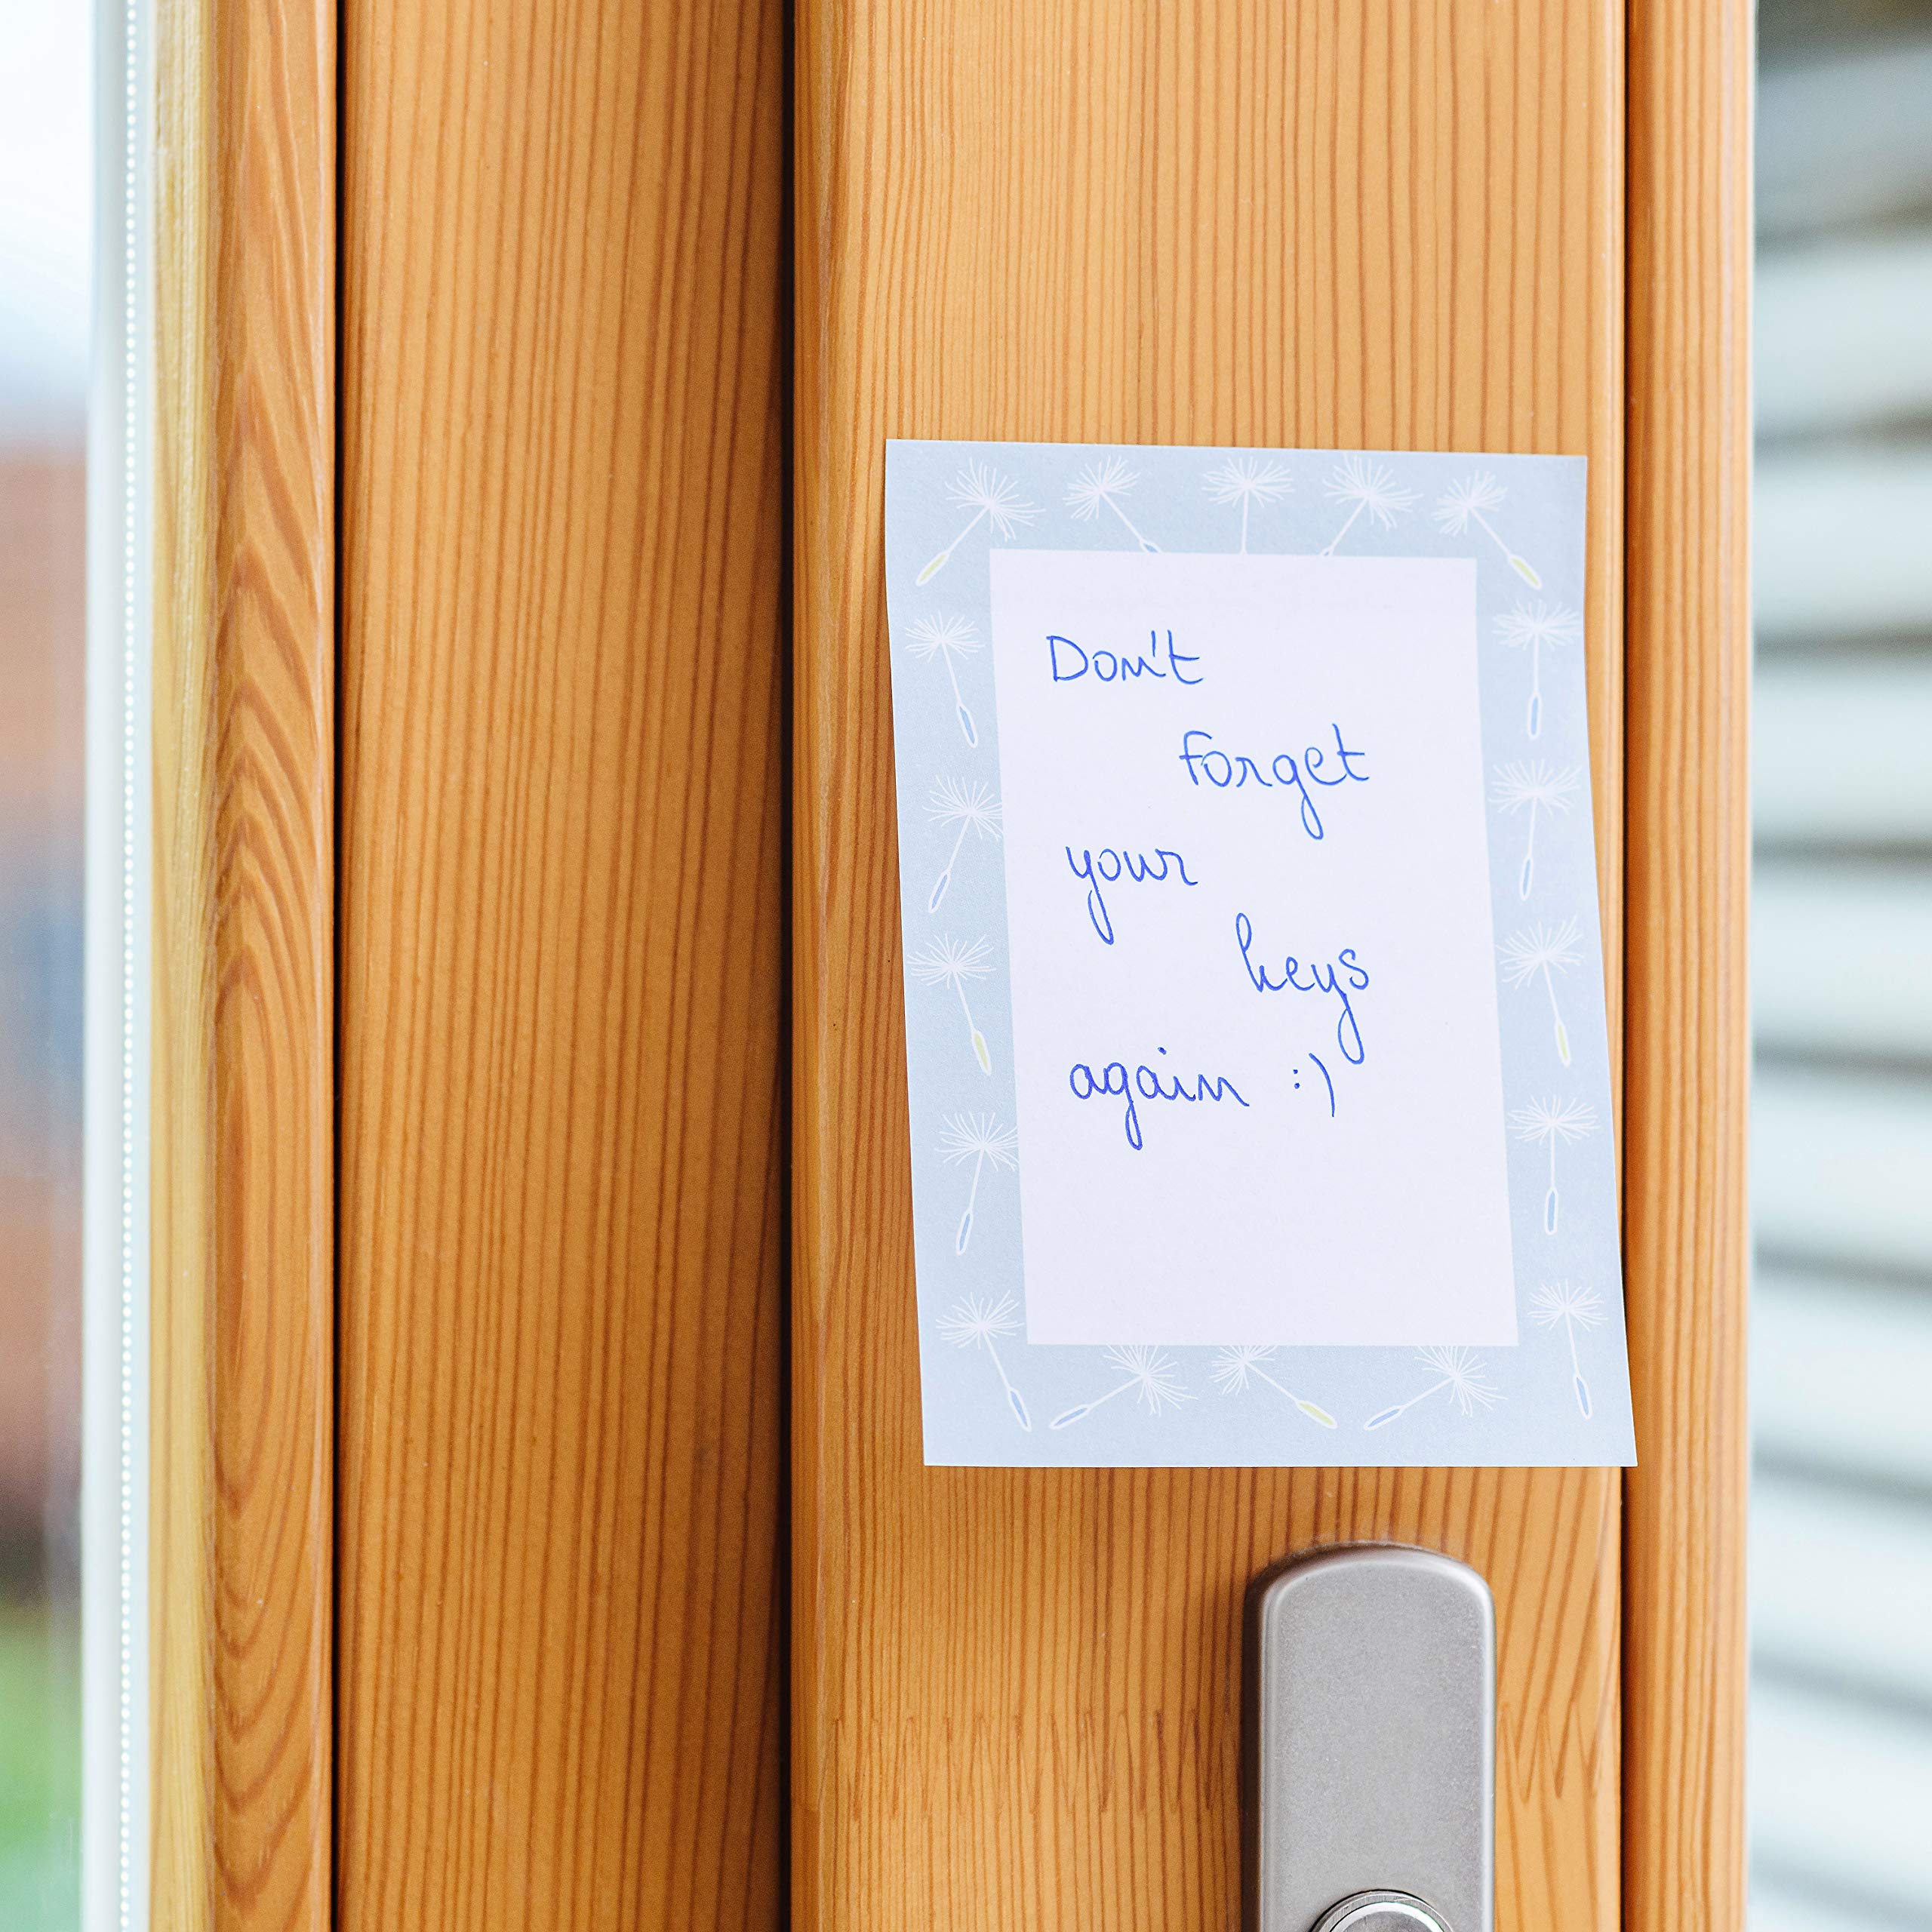 Don't
forget
your
keys
again :)